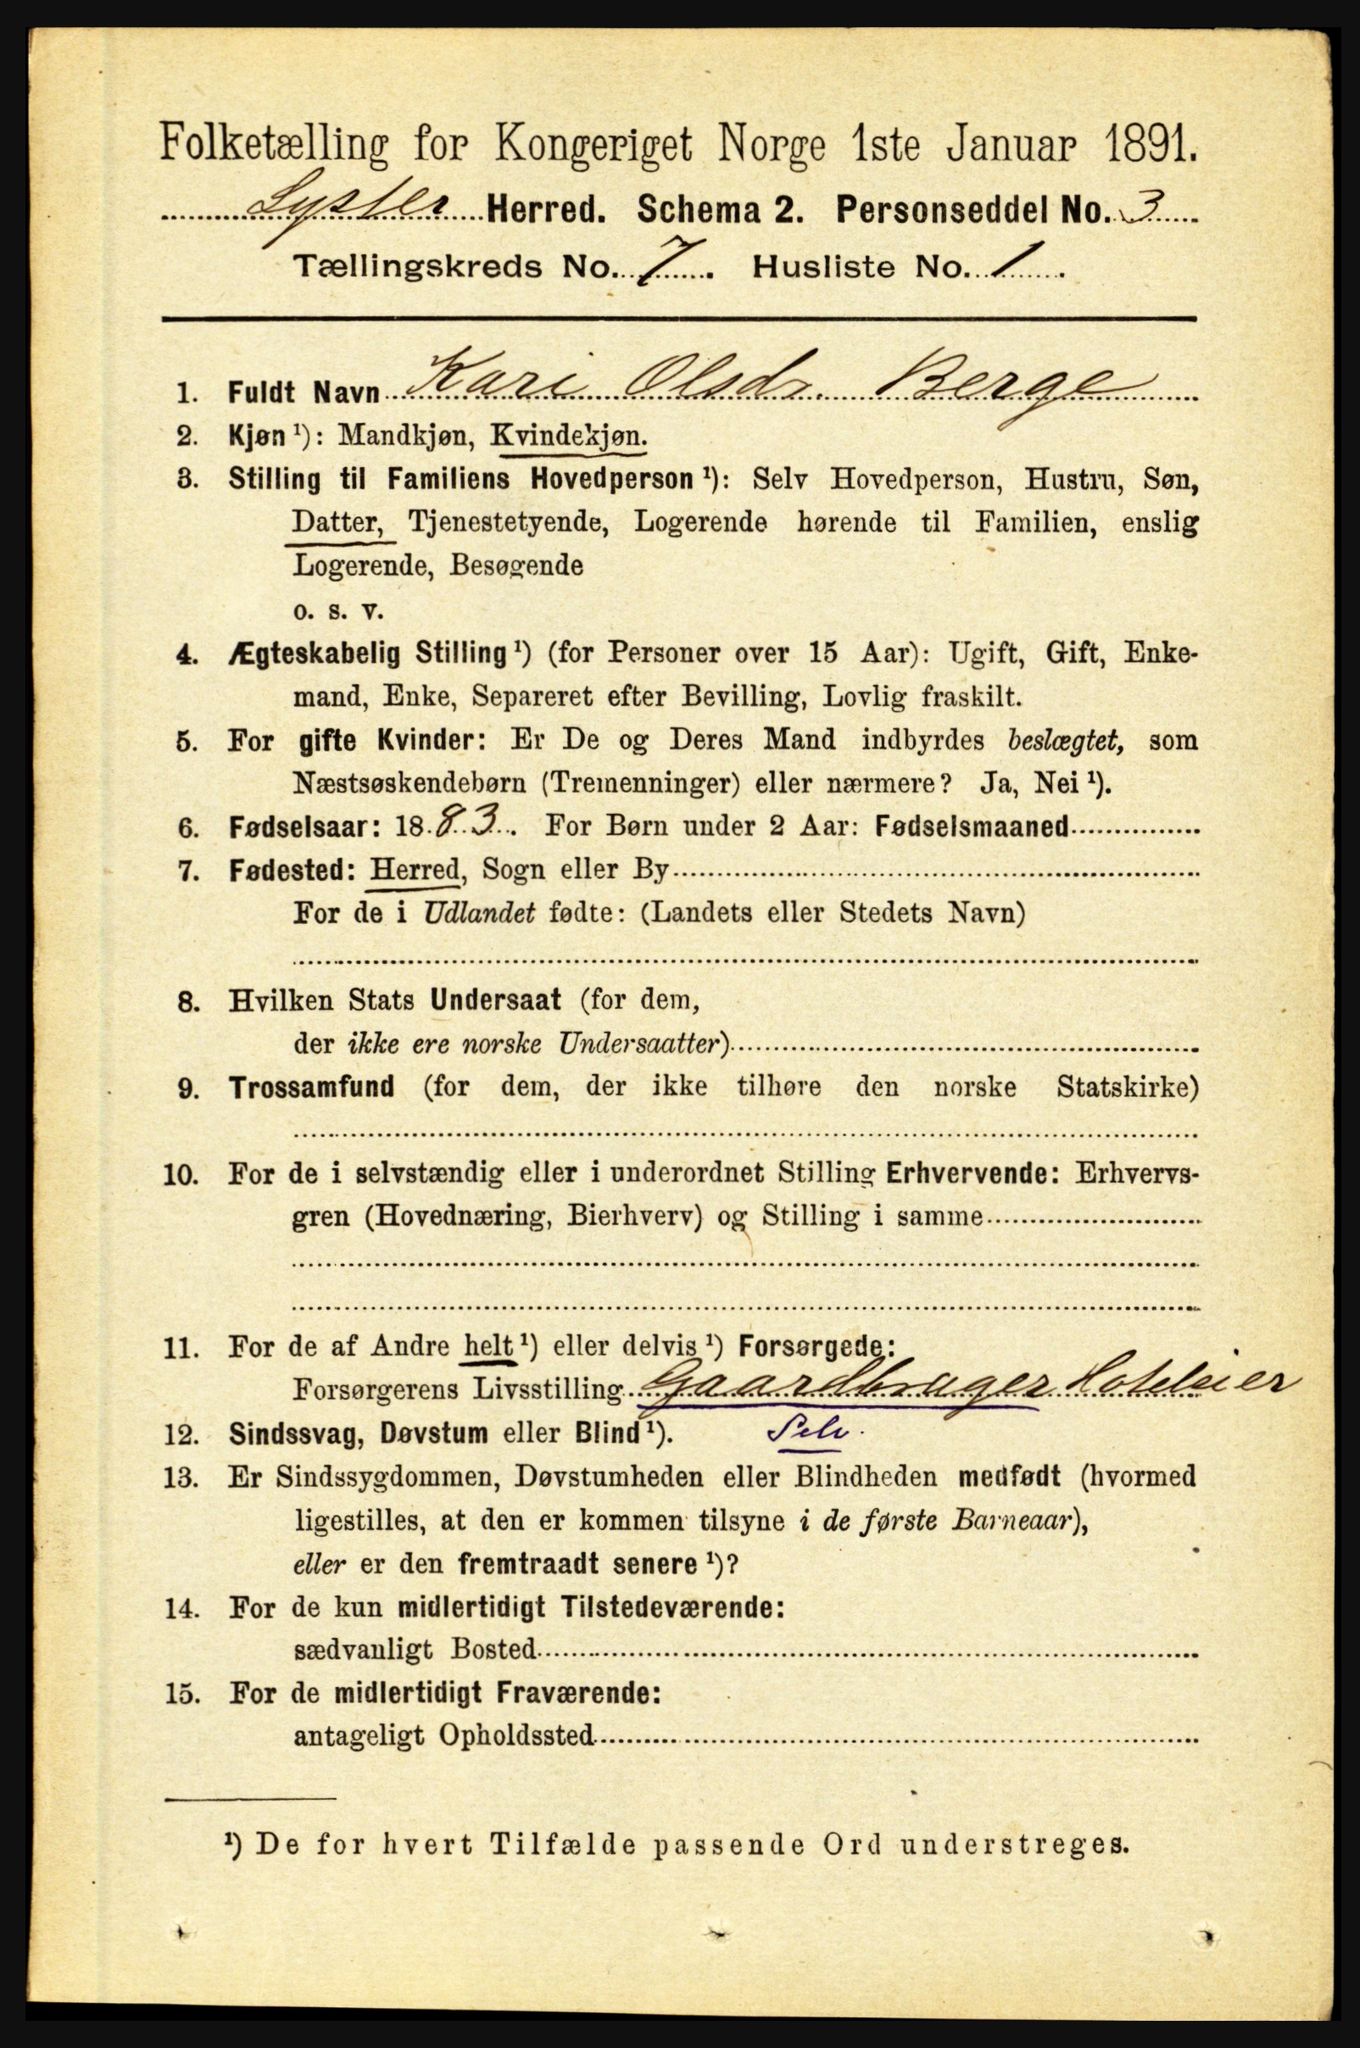 Folketælling for Kongeriget Norge 1ste Januar 1891.
Lyster Herred. Schema 2. Personseddel No. 3
Tællingskreds No. 7. Husliste No. 1.
1. Fuldt Navn Kari Olsdr. Berge
2. Kjøn ¹): Mandkjøn, Kvindekjøn.
3. Stilling til Familiens Hovedperson ¹): Selv Hovedperson, Hustru, Søn,
Datter, Tjenestetyende, Logerende hørende til Familien, enslig
Logerende, Besøgende
o. s. v.
4. Ægteskabelig Stilling ¹) (for Personer over 15 Aar): Ugift, Gift, Enke-
mand, Enke, Separeret efter Bevilling, Lovlig fraskilt.
5. For gifte Kvinder: Er De og Deres Mand indbyrdes beslægtet, som
Næstsøskendebørn (Tremenninger) eller nærmere? Ja, Nei ¹).
6. Fødselsaar: 1883. For Børn under 2 Aar: Fødselsmaaned
7. Fødested: Herred, Sogn eller By
For de i Udlandet fødte: (Landets eller Stedets Navn)
8. Hvilken Stats Undersaat (for dem,
der ikke ere norske Undersaatter)
9. Trossamfund (for dem, der ikke tilhøre den norske Statskirke)
10. For de i selvstændig eller i underordnet Stilling Erhvervende: Erhvervs-
gren (Hovednæring, Bierhverv) og Stilling i samme
11. For de af Andre helt ¹) eller delvis ¹) Forsørgede:
Forsørgerens Livsstilling Gaardbruger Hoteleier
12. Sindssvag, Døvstum eller Blind ¹). Selv.
13. Er Sindssygdommen, Døvstumheden eller Blindheden medfødt (hvormed
ligestilles, at den er kommen tilsyne i de første Barneaar),
eller er den fremtraadt senere ¹)?
14. For de kun midlertidigt Tilstedeværende:
sædvanligt Bosted
15. For de midlertidigt Fraværende:
antageligt Opholdssted
¹) De for hvert Tilfælde passende Ord understreges.